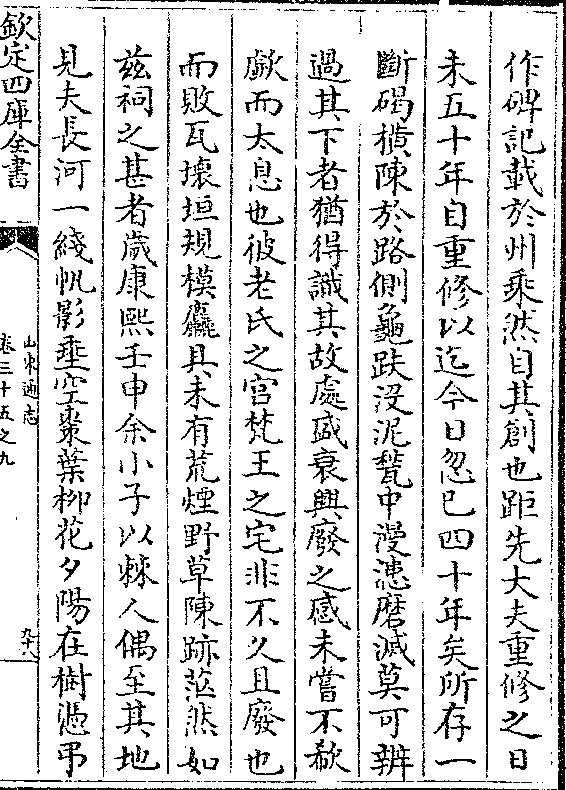 作碑記載於州乘然自其創也距先大夫重修之日
未五十年自重修以迄今日忽已四十年矣所存一
斷碣橫陳於路側龜趺没泥甃中漫漶磨滅莫可辨
過其下者猶得識其故處盛衰興廢之感未嘗不欷
歔而太息也彼老氏之宫梵王之宅非不久且廢也
而敗瓦壊垣規模麤具未有荒煙野草陳跡茫然如
兹祠之甚者歲康熙壬申余小子以棘人偶至其地
見夫長河一綫帆影垂空棗葉柳花夕陽在樹憑弔
欽定四庫全書
山東通志
卷三十五之九